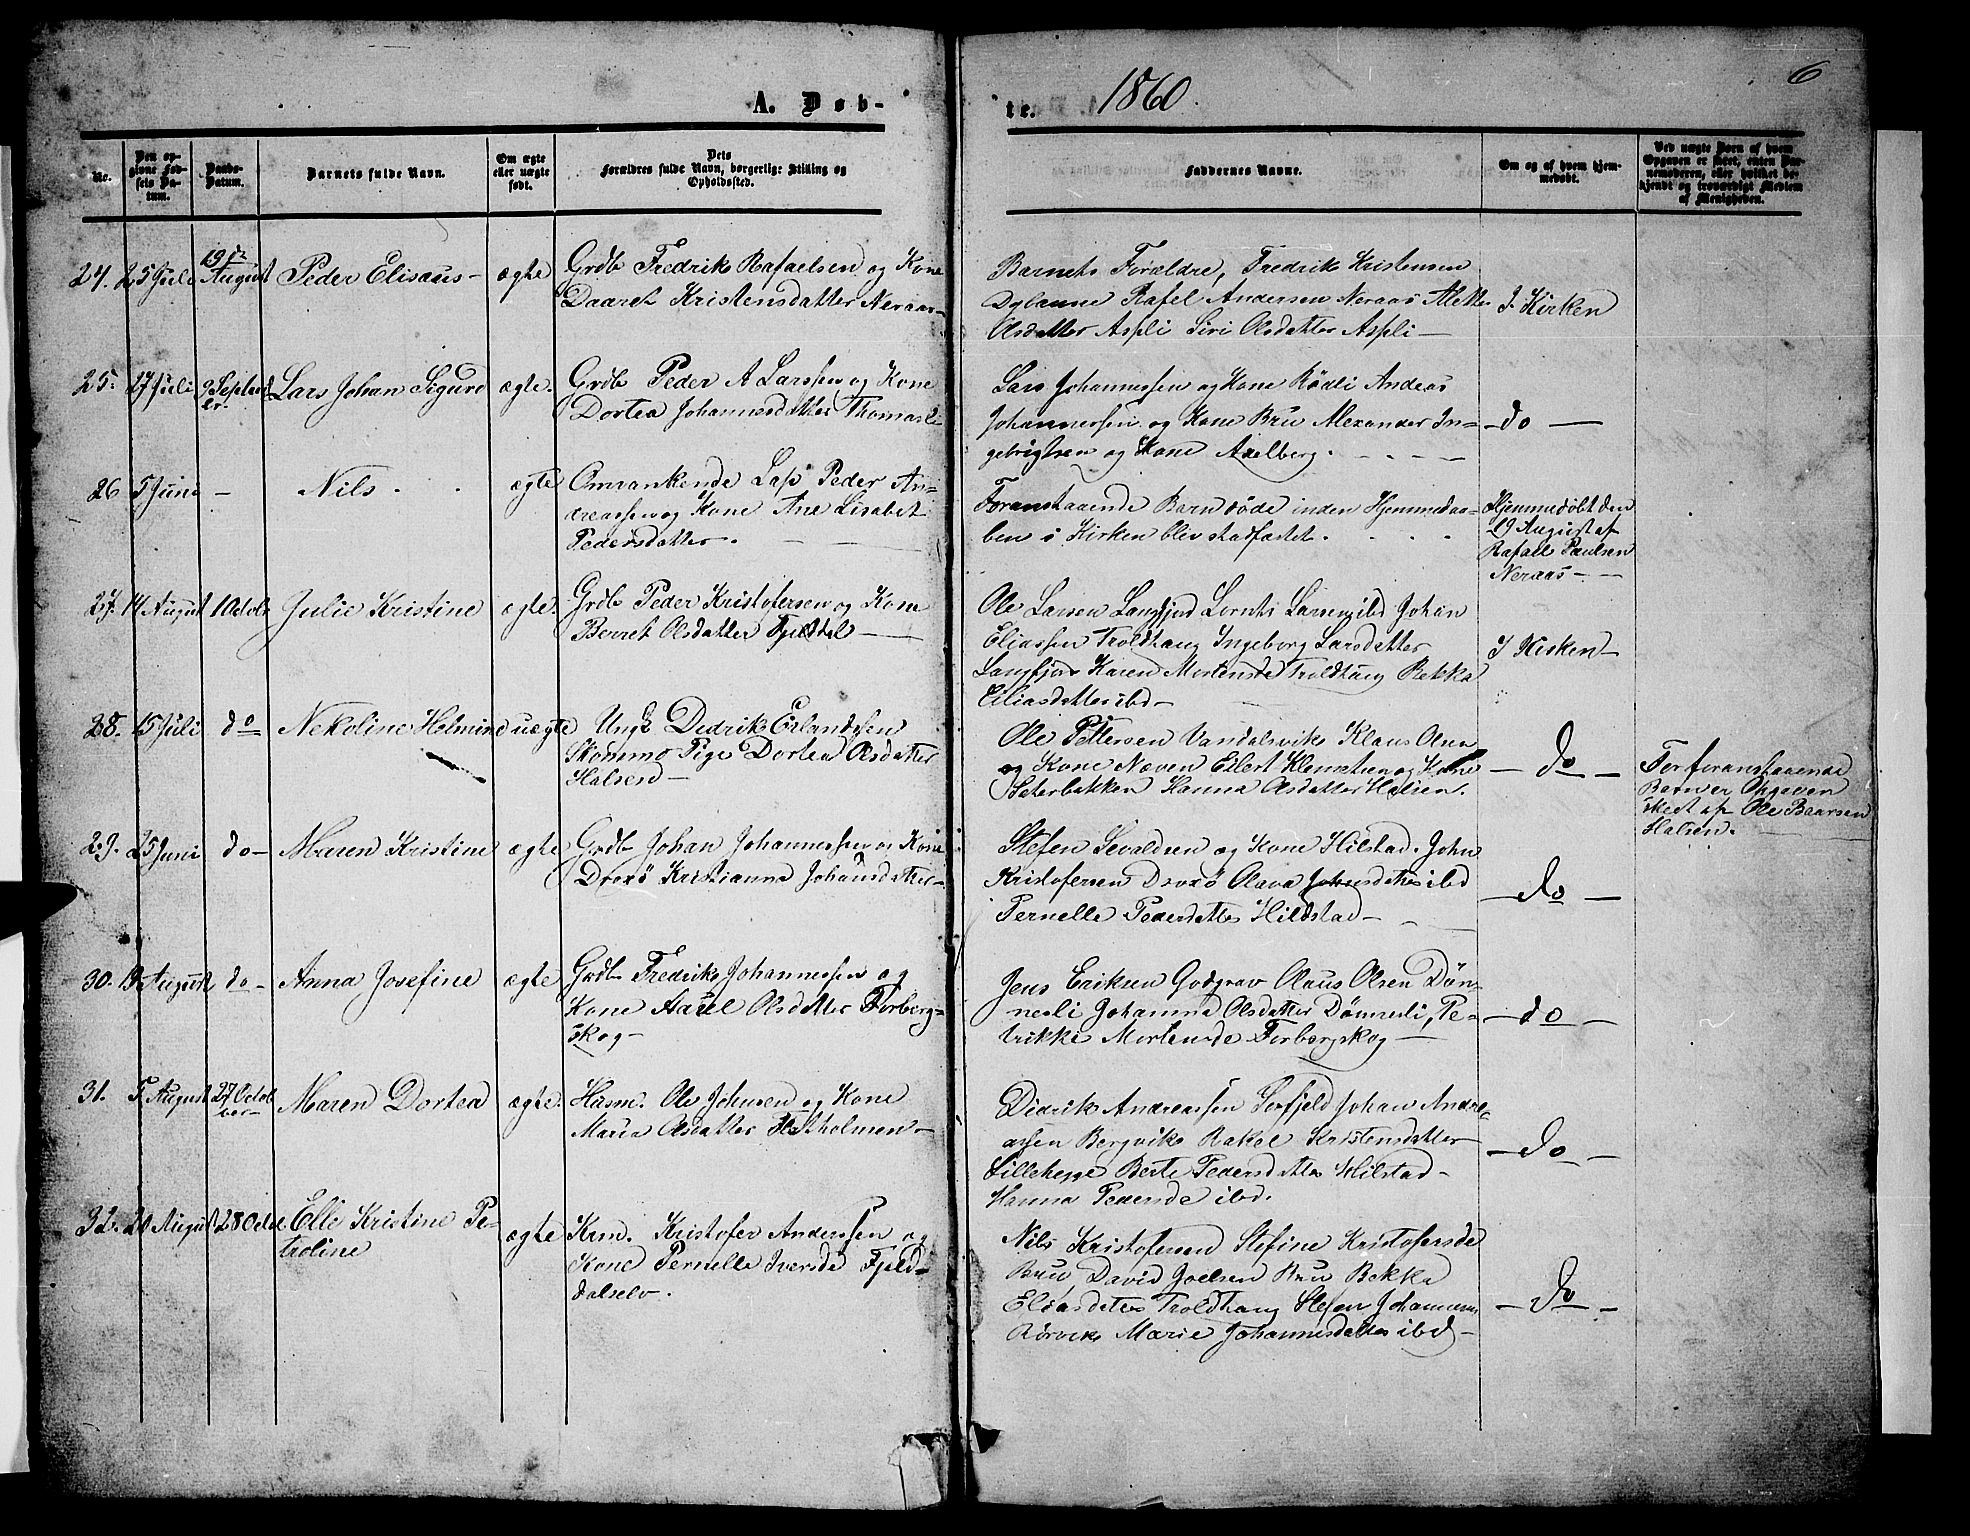 A. Døb-
te.
1860.
6
Nr.
Den op-
givne Fød-
sels Da-
tum.
Daabs-
Datum.
Barnets fulde Navn.
Om ægte
eller uægte
født.
Dets
Forældres fulde Navn, borgerlige Stilling og
Opholdssted.
Faddernes Navne.
Om og af hvem hjem-
medøbt.
Ved uægte Børn af hvem
Opgaven er skeet, enten Bar-
nemoderen, eller hvilket be-
kjendt og troværdigt Medlem
af Menigheden.
24. 25 Juli 19de August Peder Elisæus- ægte Grdb Fredrik Rafaelsen og Kone
Daaret Kristensdatter Neraas-
Barnets Forældre, Fredrik Kristensen
Rafel Andersen Neraas Alette
Olsdatter Aspli Siri Olsdatter Aspli-
I Kirken
25. 27 Juli 9 Septem-
br. Lars Johan Sigurd ægte. Grdb Peder A Larssen og Kone
Dortea Johannesdatter Thomasli
Lars Johannessen og Kone Rødli Andeas
Johannessen og Kone Bru Alexander In-
gebrigtsen og Kone Axelberg.
-do-
26 5 Juni - Nils. ægte Omvankende Lap Peder An-
dreassen og Kone Ane Lisabet
Pedersdatter.
Foranstaaende Barn døde inden Hjemmedaa-
ben i Kirken blev stadfæstet.
Hjemmedøbt den
19 August af
Rafael Paulsen
Neraas-
27. 14 August 1 Octob Julie Kristine ægte. Grdb Peder Kristofersen og Kone
Berret Olsdatter Fjeldal
Ole Larsen Langfjord Lornts Larsen ibd Johan
Eliassen Troldhaug Ingeborg Larsdatter
Langfjord Karen Mortensde Troldhaug Rekka
Eliasdatter ibd-
I Kirken-
28. 15 Juli do Nekoline Helmine uægte Ungk Dedrik Erlandsen
Skommo Pige Dortea Olsdatter
Halsen-
Ole Pettersen Vandalsvik Klaus Olsen
og Kone Næven Eilert Klemetsen og Kone
Seterbakken Hanna Olsdatter Halsen.
-do-
For foranstaaende
Barn er Opgaven
skeet af Ole Baarsen
Halsen.
29. 25 Juni do- Maren Kristine ægte Grdb Johan Johannessen og Kone
Dvoxø Kristianna Johansdatter-
Stefen Sevaldsen og Kone Hilstad. John
Kristofersen Dvoxø Olava Johnsdatter ibd
Pernelle Pedersdatter Hildstad-
-do-
30. 19 August do- Anna Josefine ægte Grdb Fredrik Johannessen og
Kone Axel Olsdatter Forberg-
skog-
Jens Eriksen Godgrav Olaus Olsen Døn-
nesli Johanna Olsdatter Dønnesli, Pe-
trikke Mortensde Forbergskog-
-do-
31. 5 August 27 Octob
ber- Maren Dortea ægte. Husm. Ole Johnsen og Kone
Maria Olsdatter Holtholmen-
Didrik Andreassen Sørfjeld Johan Andre-
assen Bergvik Rakel Kristensdatter
Lilleheppe Berte Pedersdatter Hilstad-
Hanna Pedersde ibd.
-do-
32. 21 August 28 Octob Elle Kristine Pe-
troline ægte Krm. Kristofer Anderssen og
Kone Pernelle Iversde Fjeld-
dalselv.
Nils Kristofersen Stefine Kristofersde
Bru, David Joelsen Bru Bekka
Eliasdatter Troldhaug Stefen Johannesn
Rørvik Marie Johannesdatter ibd-
-do-